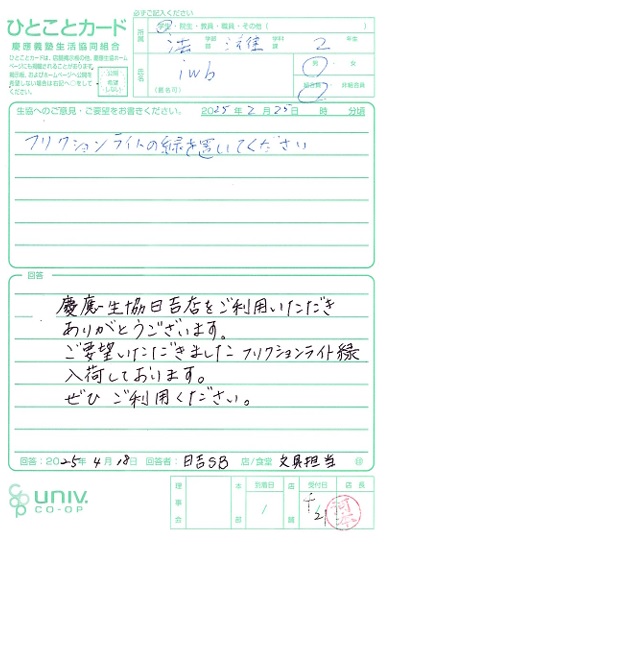 ひとことカード
慶應義塾生活協同組合
ひとことカードは、店頭掲示板の他、慶應生協ホームページにも掲載されることがあります。
掲示板、およびホームページへ公開を希望しない場合は右記へ○をしてください。
公開希望しない
必ずご記入ください
所属
学生・院生・教員・職員・その他（　　　）
法 学部 法律 学科 2 年生
氏名
iwb
（匿名可）
男・女
組合員・非組合員
生協へのご意見・ご要望をお書きください。 2025年2月25日 時 分頃
フリクションライトの緑を置いてください
回答
慶應生協日吉店をご利用いただき
ありがとうございます。
ご要望いただきましたフリクションライト緑
入荷しております。
ぜひ ご利用ください。
回答：2025年4月18日 回答者：日吉SB 店/食堂 文具担当 ㊞
UNIV.
CO-OP
理事会 本部 到着日 店舗 受付日 店長
/